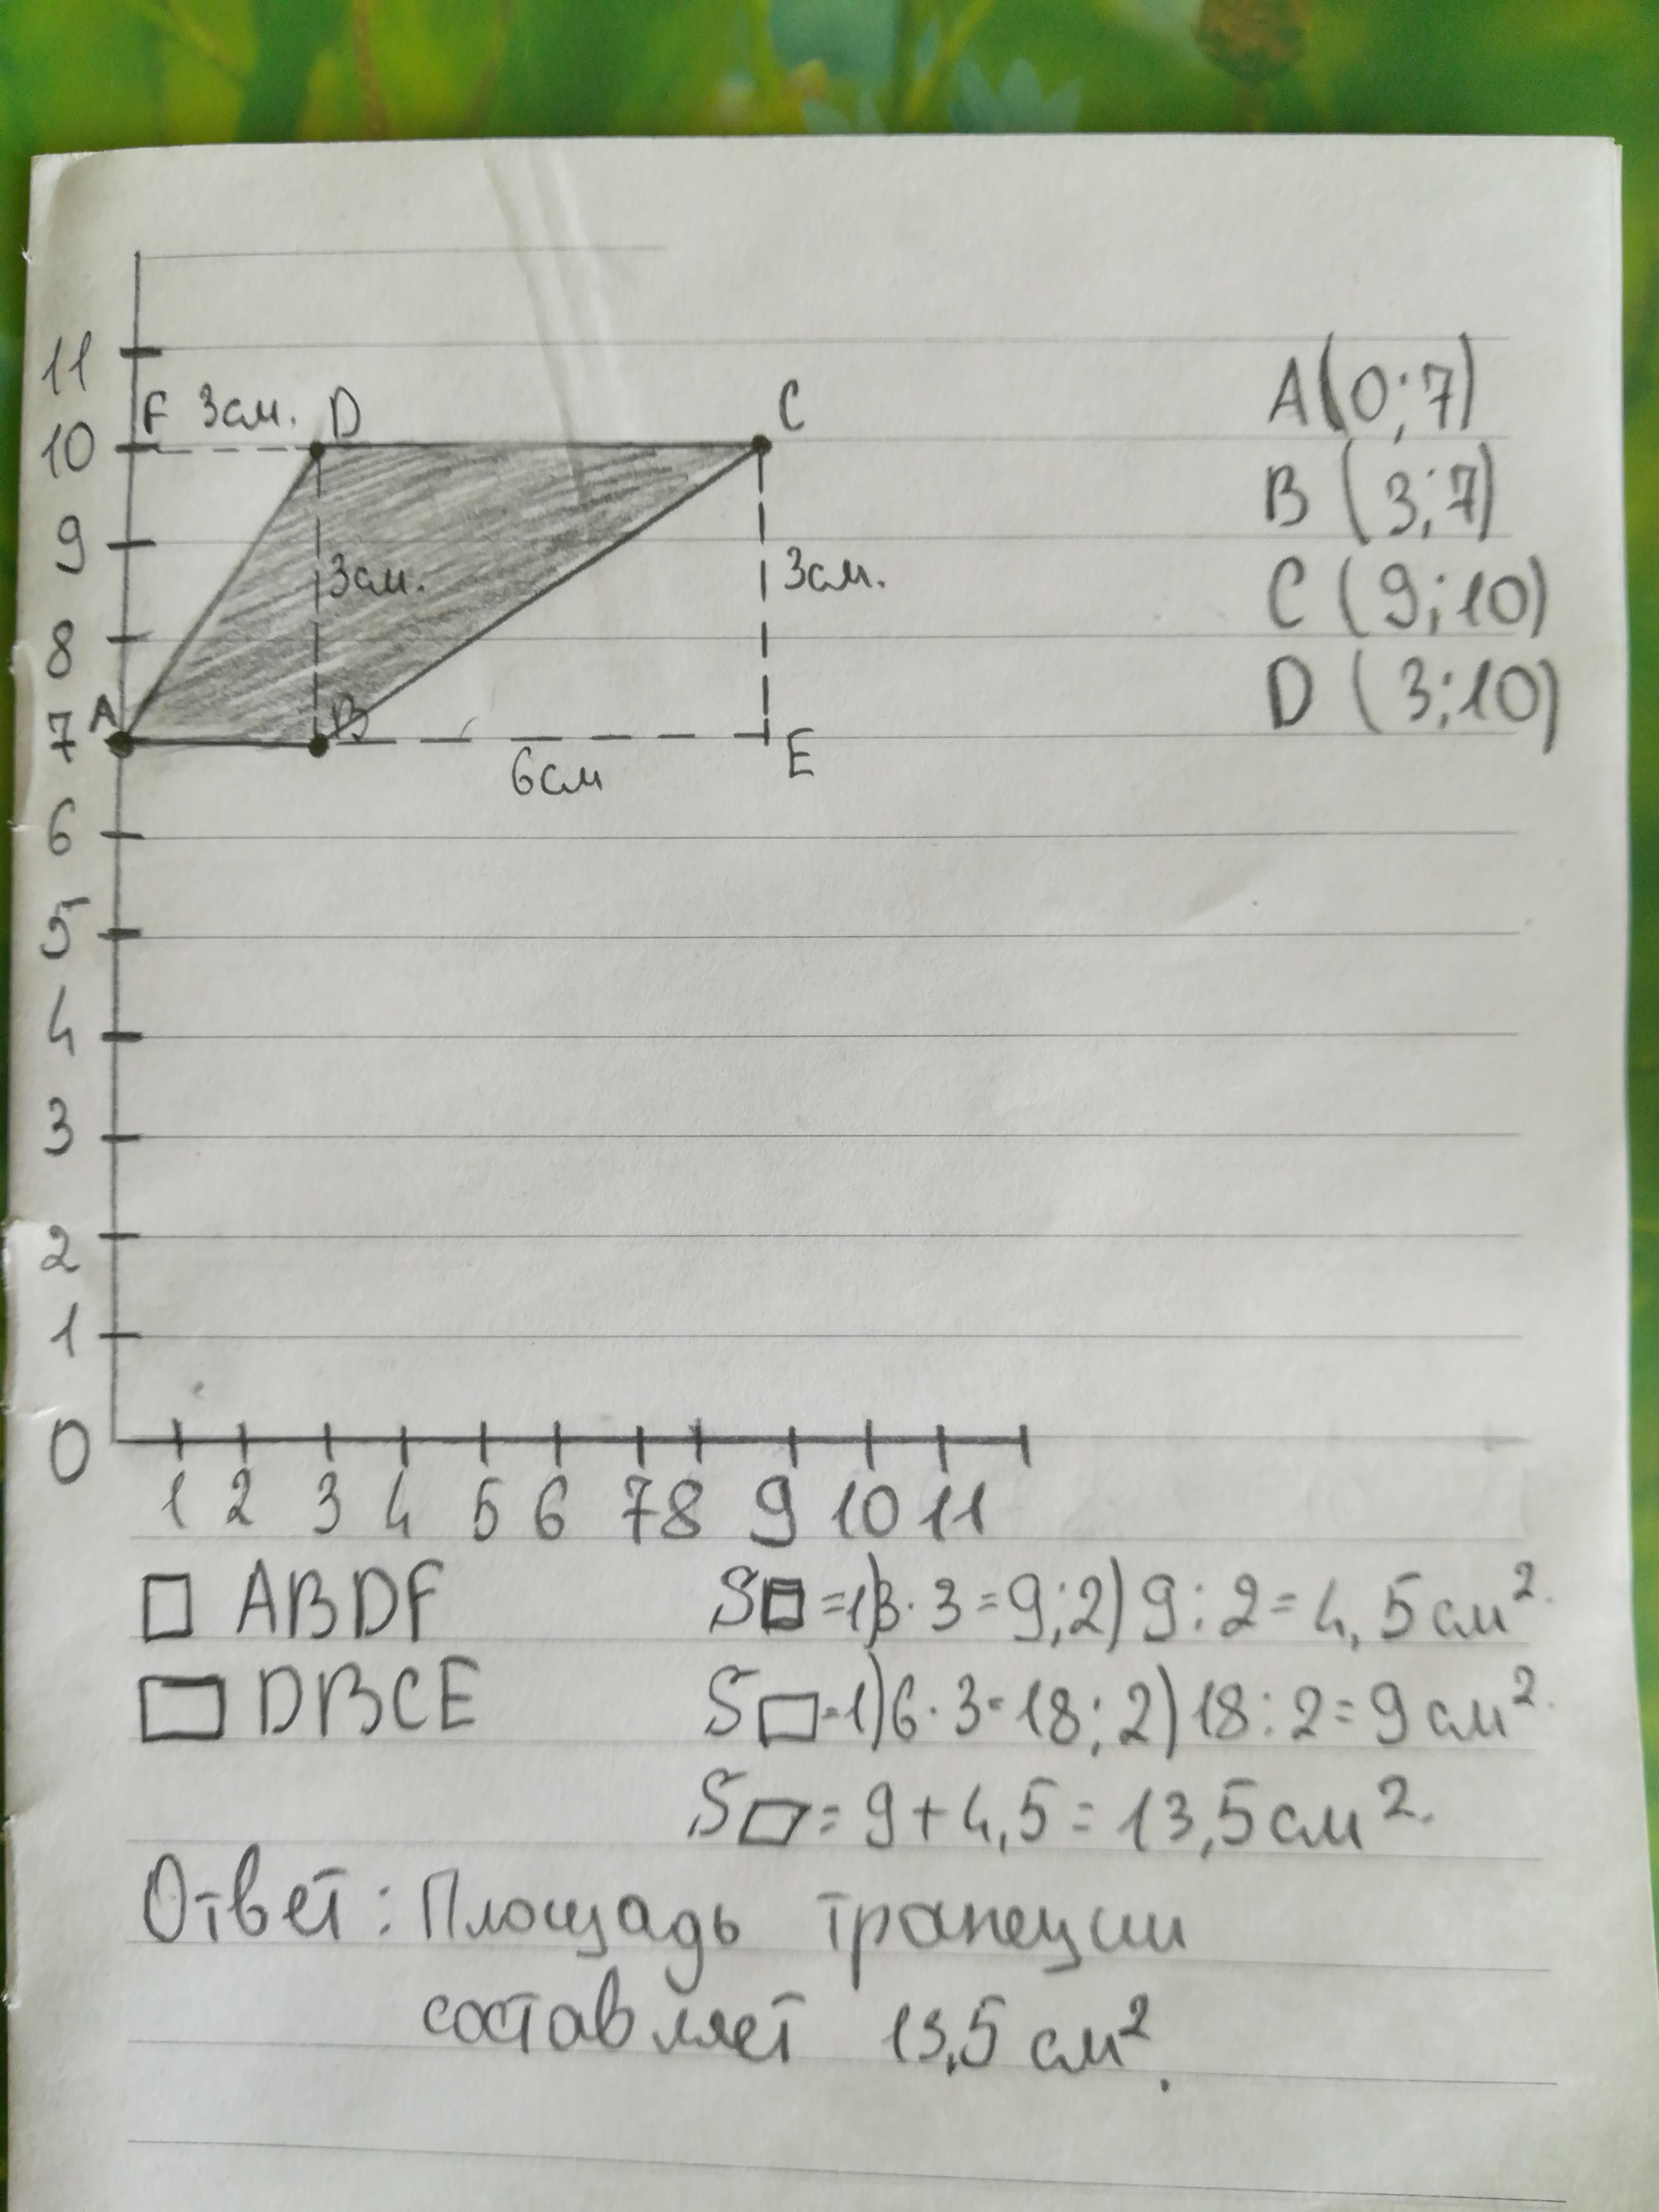 11
F 3см. D C
10
9
3см. 3см.
8
A B
7
E
6см
6
5
4
3
2
1
0
1 2 3 4 5 6 7 8 9 10 11
A(0;7)
B (3;7)
C (9;10)
D (3;10)
□ ABDF S□ =1)3·3=9;2) 9:2=4,5см².
▭ DBCE S▭=1)6·3=18;2)18:2=9см².
S▱= 9+4,5=13,5см².
Ответ: Площадь трапеции
составляет 13,5 см².